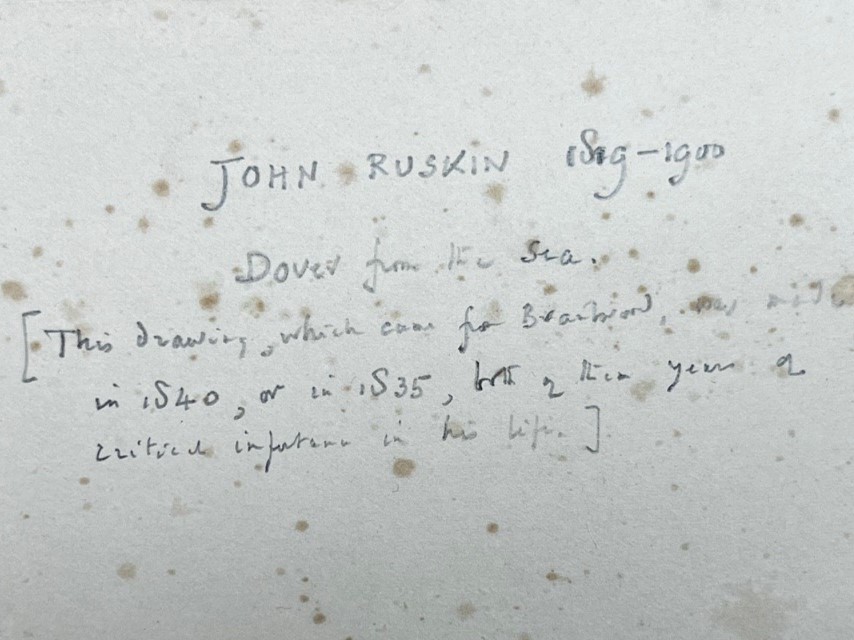 JOHN RUSKIN 1819-1900
Dover from the Sea.
[This drawing, which came from Brantwood, was made
in 1840, or in 1835, both of them years of
critical importance in his life.]